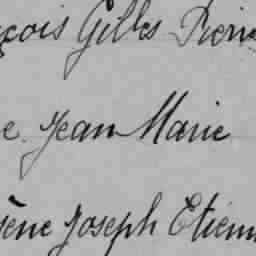 çois Gilles Pierre
e Jean Marie
gène Joseph Etienn